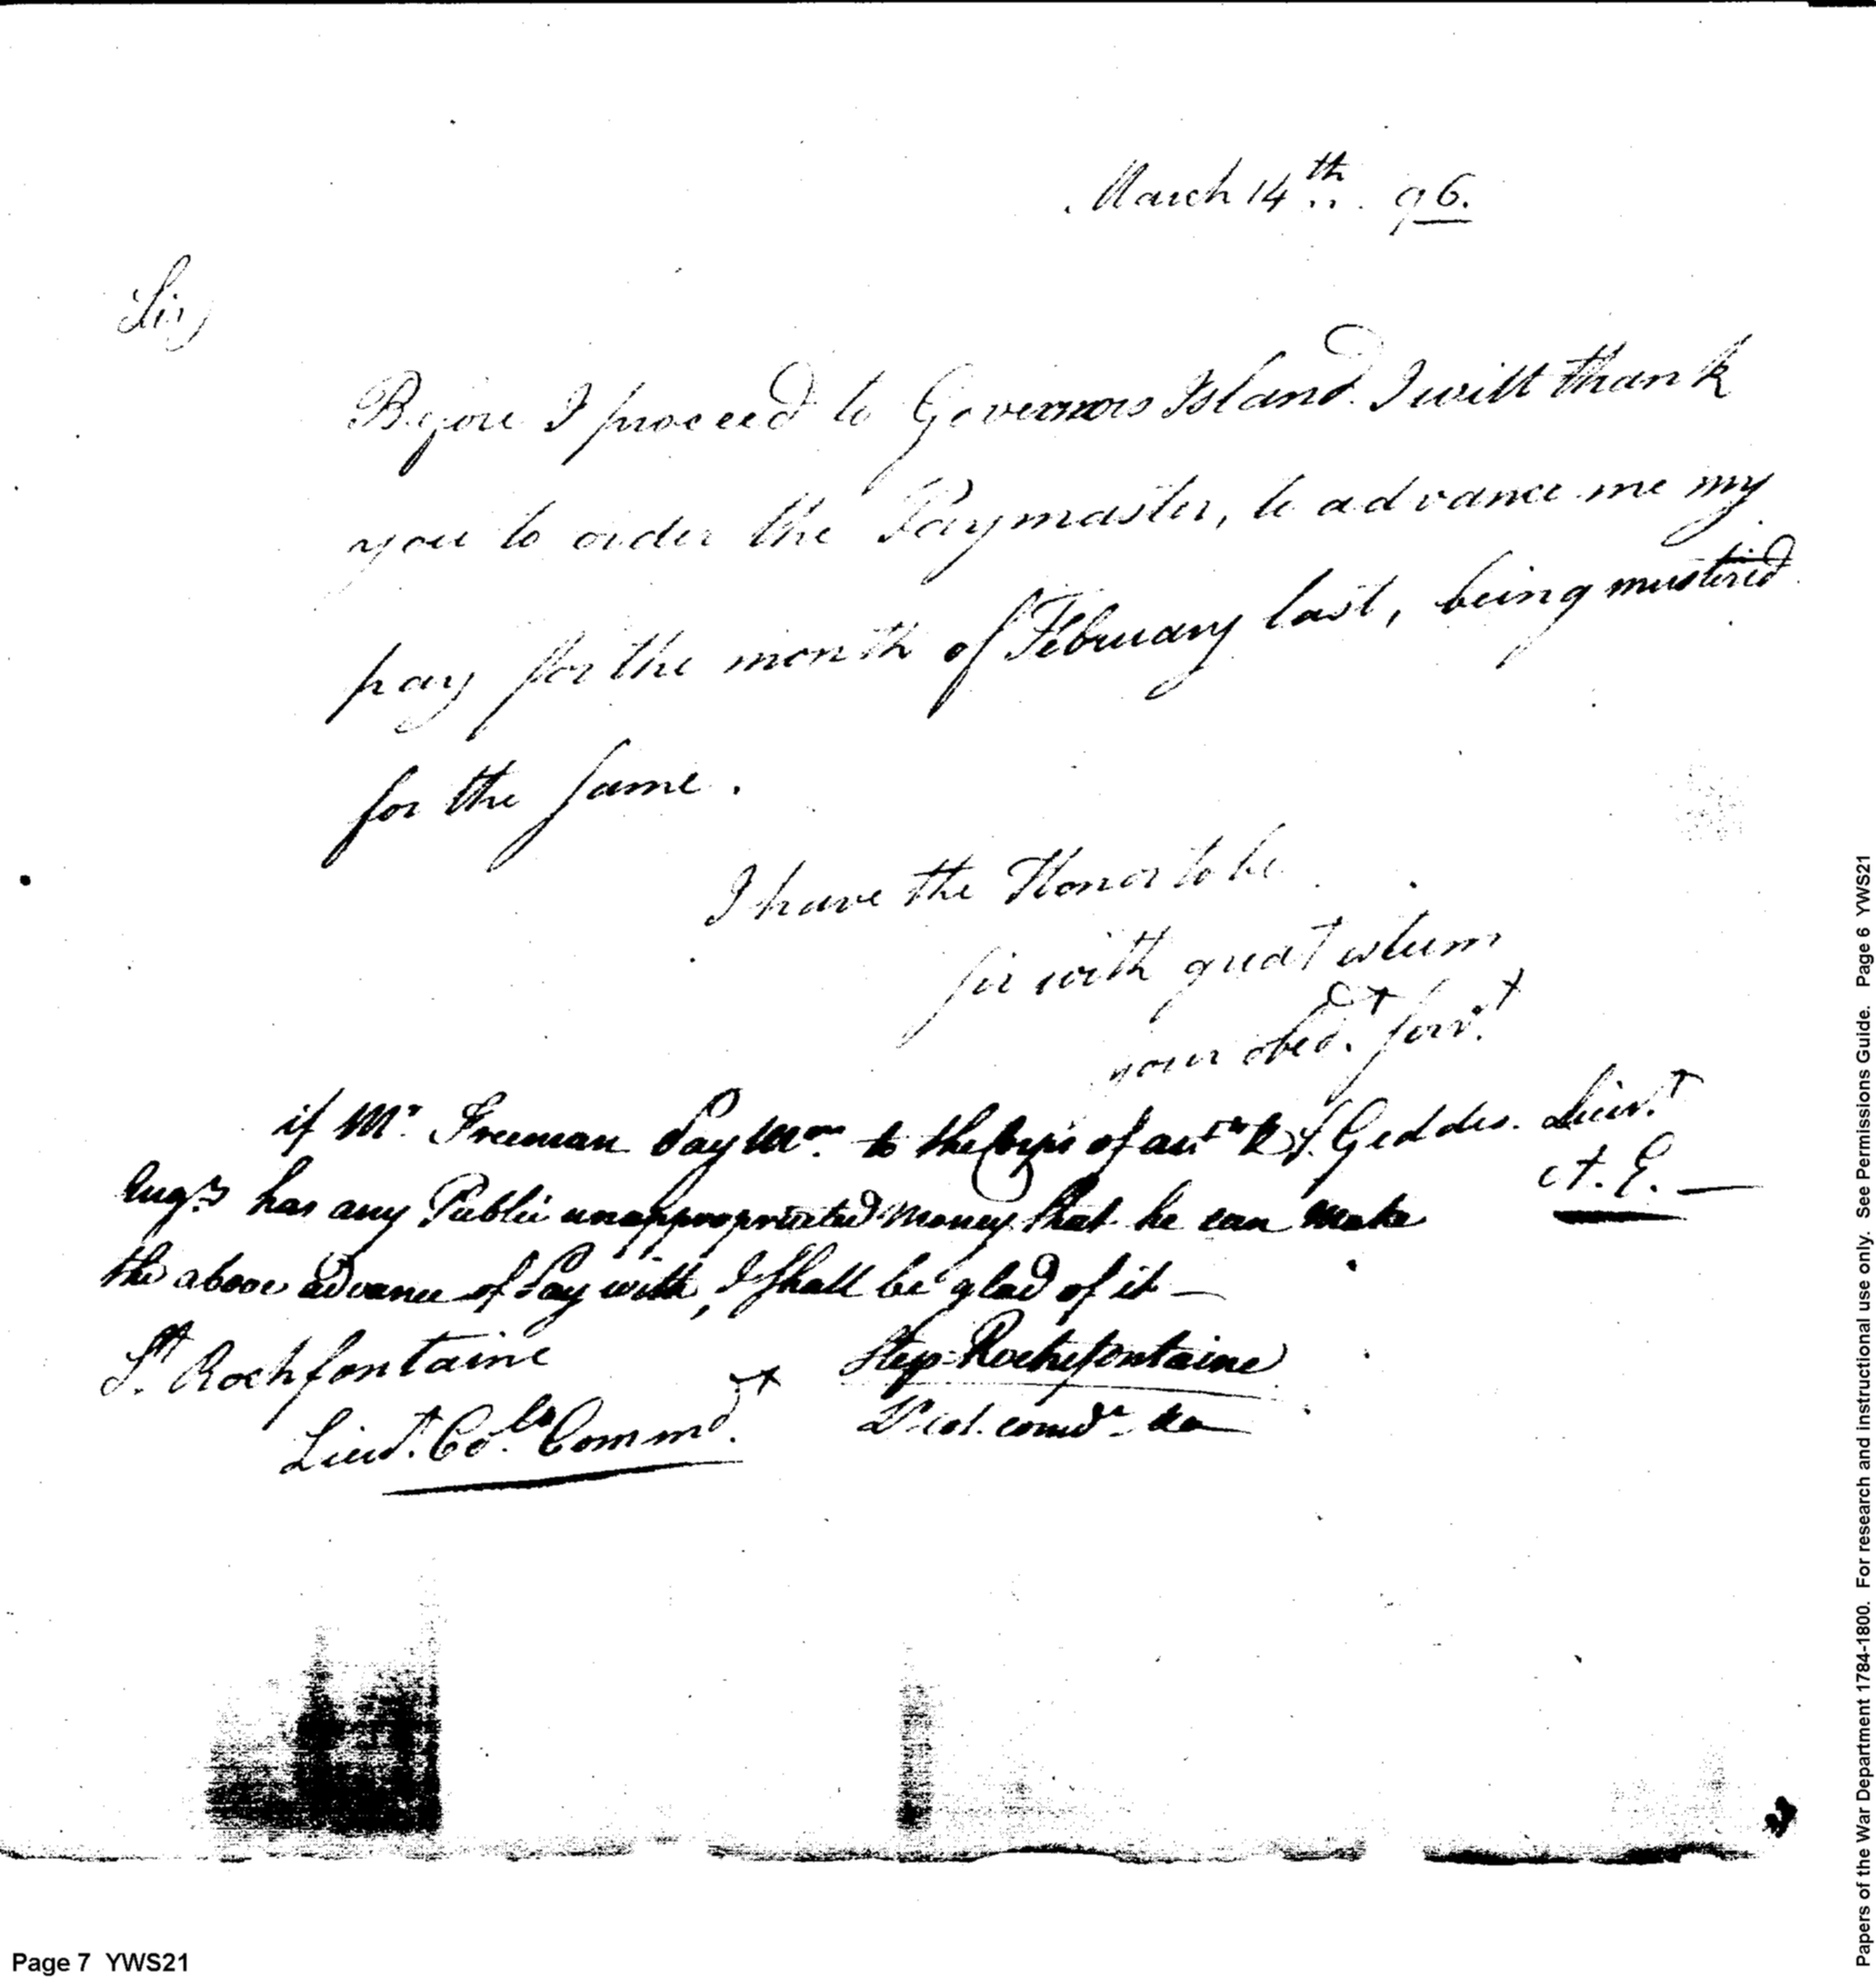 March 14th 96.
Sir,
Before I proceed to Governors Island. I will thank
you to order the Paymaster, to advance me my
pay for the month of February last, being mustered
for the same.
I have the Honor to be
Sir with great esteem
your obedt. Servt.
S. Geddes. Lieut.
A. E.
if Mr. Freeman Pay Mr. to the Corps of
Engrs has any Public unappropriated Money that he can make
the above advance of Pay with, I shall be glad of it
Step Rochefontaine
Lt col. comdt
St. Rochfontaine
Lieut. Col. Commdt.
Page 7 YWS21
Papers of the War Department 1784-1800. For research and instructional use only. See Permissions Guide. Page 6 YWS21